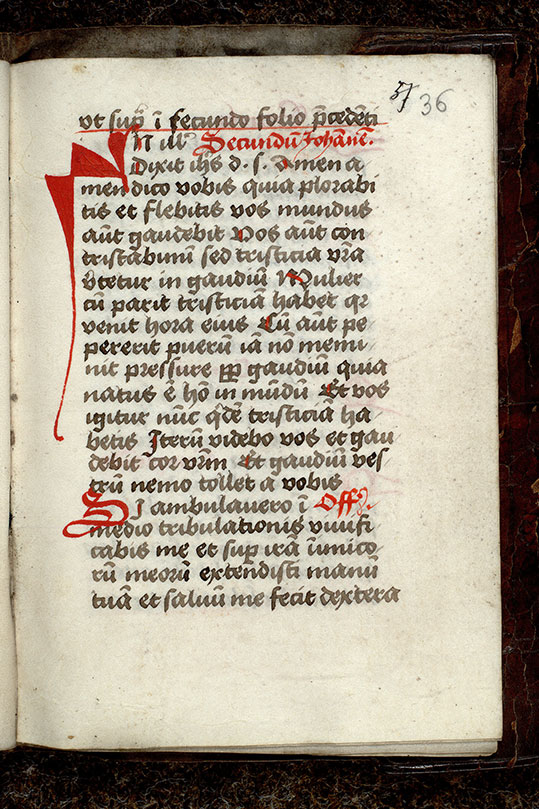 37 36
ut sup̄ ī secundo folio p̄cedēti
IN ill̄ Secundū Johānē.
Dixit ihs d. s. Amen a
men dico vobis quia plorabi
tis et flebitis vos mundus
aūt gaudebit Vos aūt con
tristabimī sed tristicia vr̄a
v̄tetur in gaudiū Mulier
cū parit tristiciā habet qr
venit hora eius Cū aūt pe
pererit puerū iā nō memi
nit pressure ꝓp gaudiū quia
natus ē hō in mūdū Et vos
igitur nūc qdē tristiciā ha
betis Iterū videbo vos et gau
debit cor vrm̄ Et gaudiū ves
trū nemo tollet a vobis
Si ambulavero ī Off.
medio tribulationis vivifi
cabis me et sup irā īimico
rū meorū extendisti manū
tuā et salvū me fecit dextera